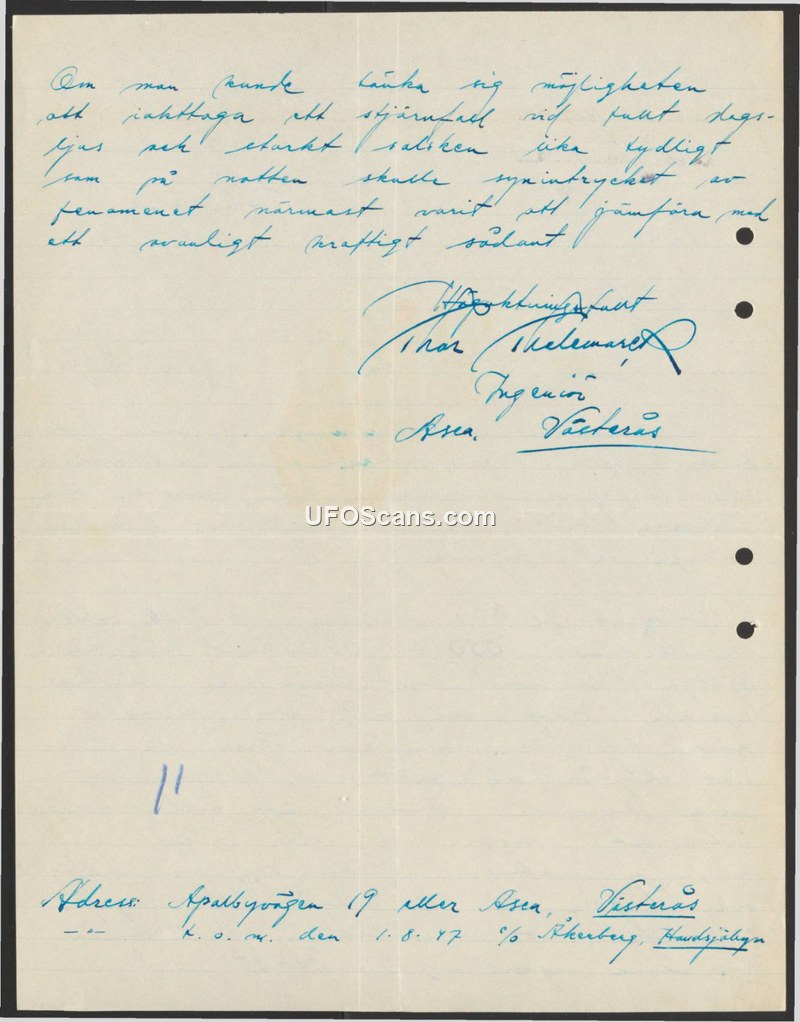 Om man kunde tänka sig möjligheten
att iakttaga ett stjärnfall vid fullt dags-
ljus och starkt solsken lika tydligt
som på natten skulle synintrycket av
fenomenet närmast varit att jämföra med
ett ovanligt kraftigt sådant
Högaktningsfullt
Thor
Ingeniör
Asea, Västerås
UFOScans.com
11
Adress: Apalbyvägen 19 eller Asea, Västerås
—"— t. o. m. den 1.8.47 c/o Åkerberg,